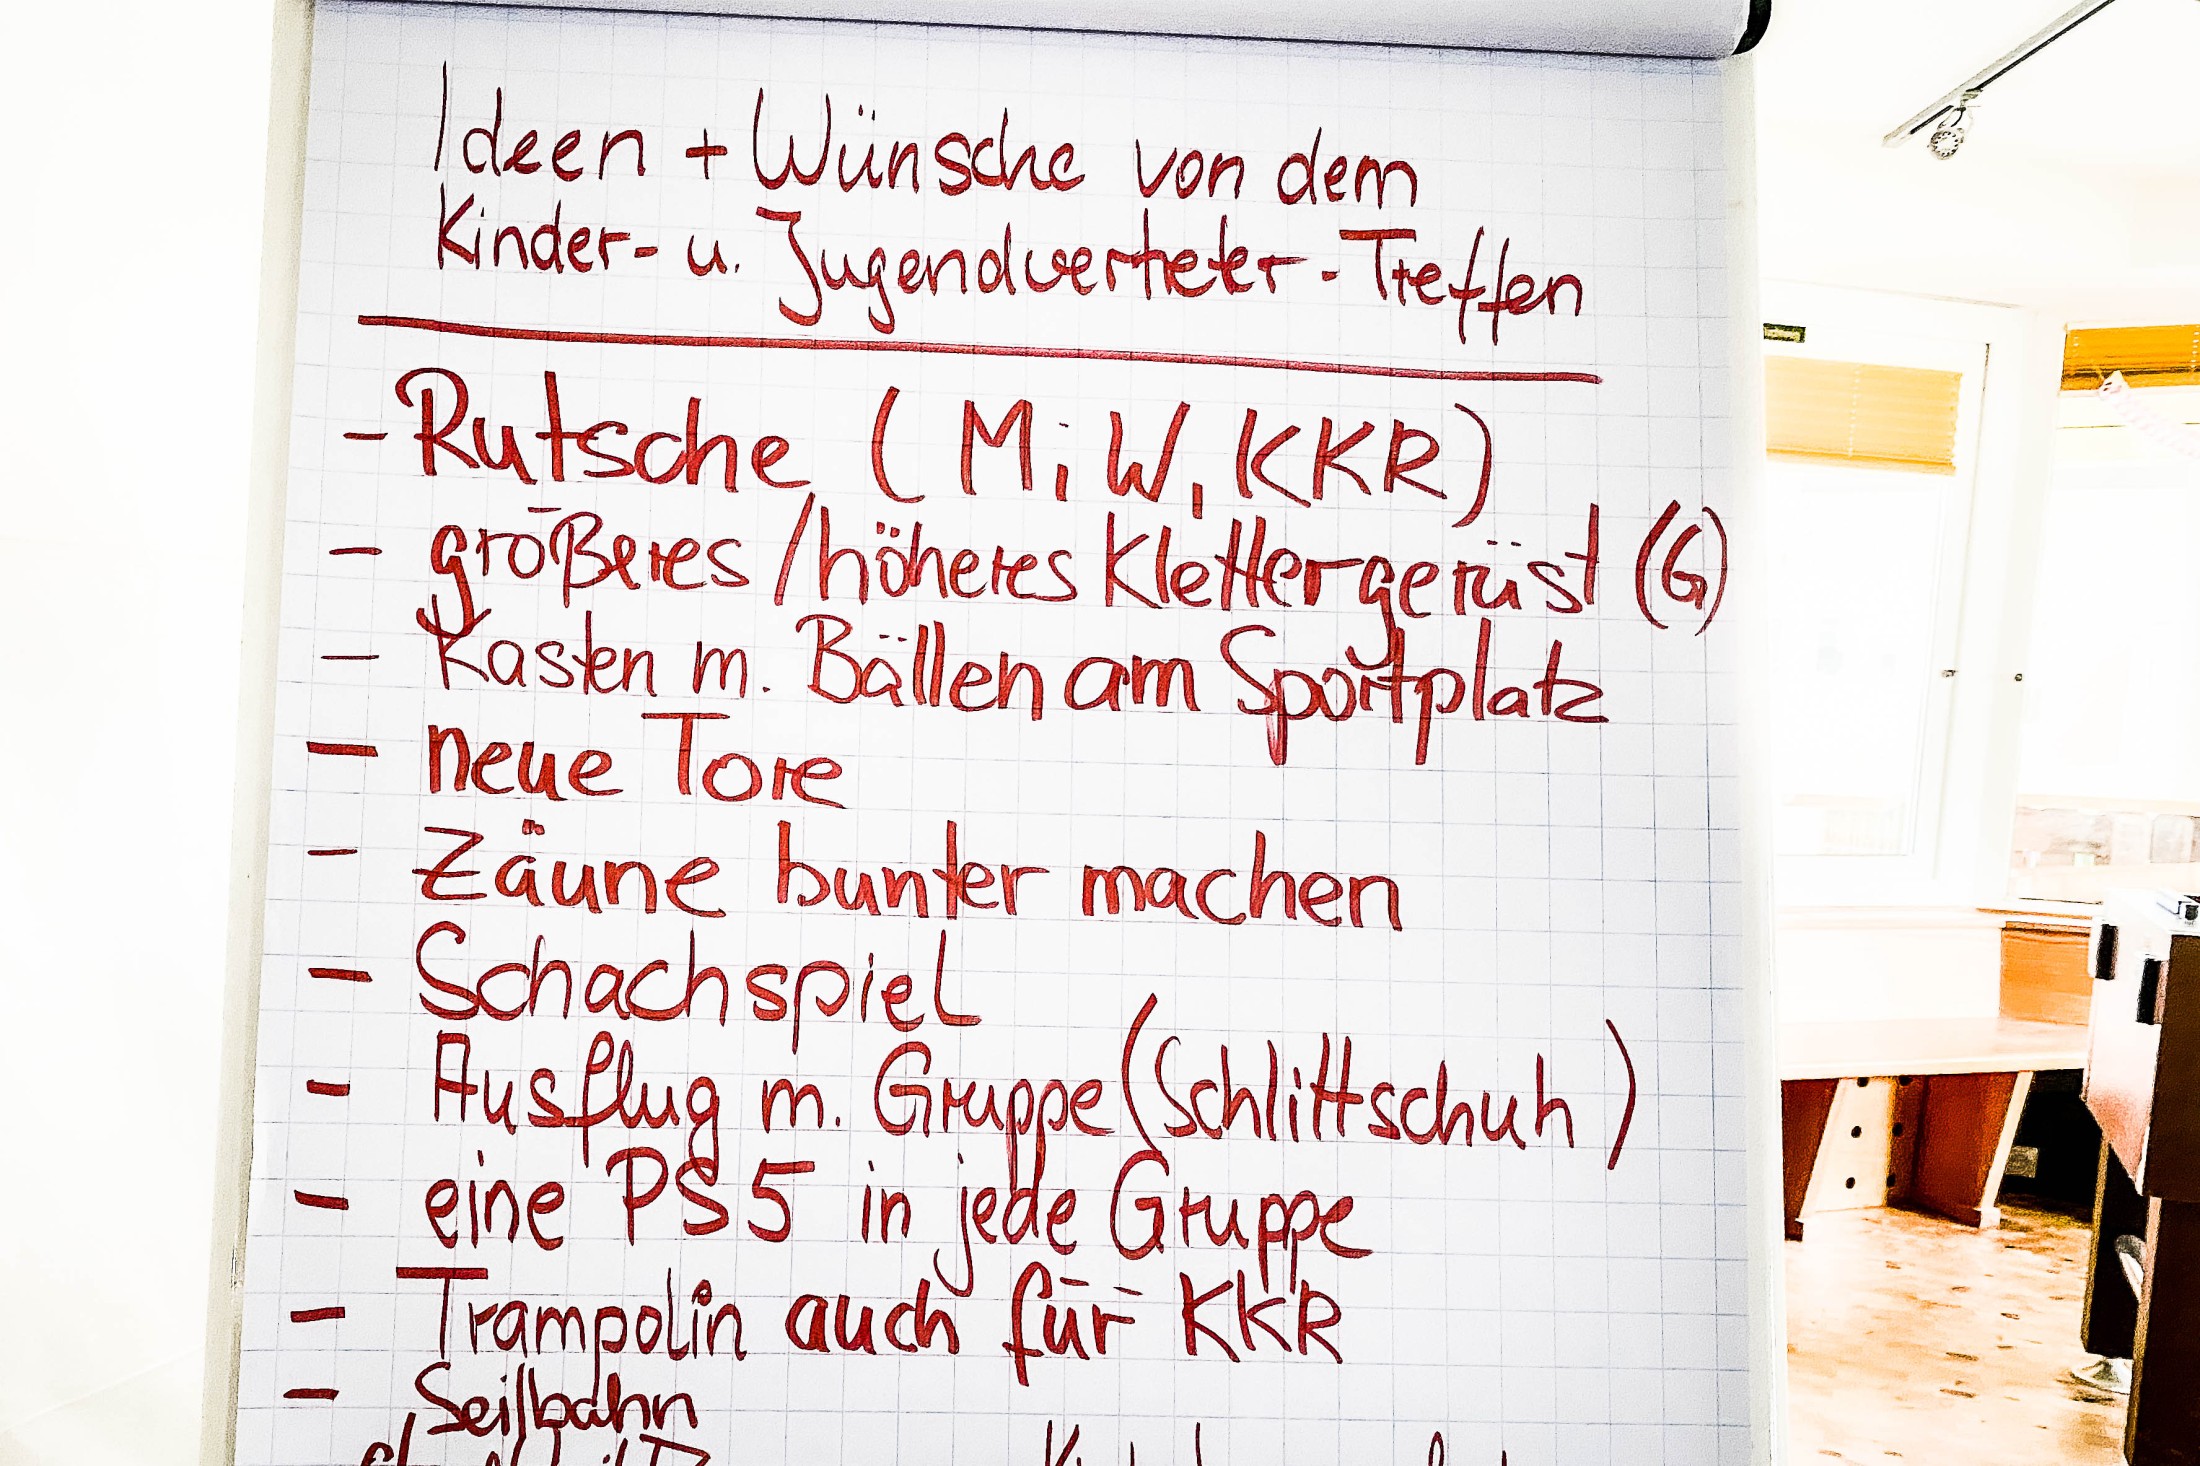 Ideen + Wünsche von dem
Kinder- u. Jugendvertreter-Treffen
- Rutsche (MiW, KKR)
- größeres/höheres Klettergerüst (G)
- Kasten m. Bällen am Sportplatz
- neue Tore
- Zäune bunter machen
- Schachspiel
- Ausflug m. Gruppe (Schlittschuh)
- eine PS5 in jede Gruppe
- Trampolin auch für KKR
- Seilbahn